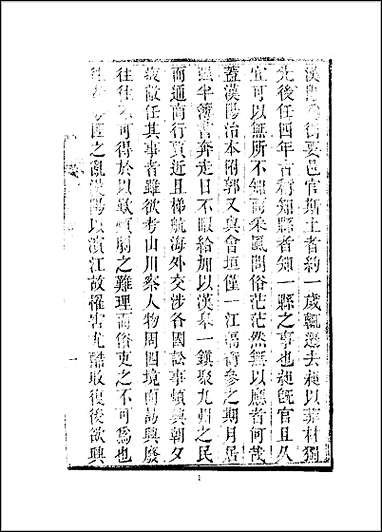 漢陽衝要邑官斯土者約一歲輒遷去昶以菲材獨
先後任四年古稱知縣者知一縣之事也昶旣官且久
宜可以無所不知而采風問俗茫茫然無以應者何哉
蓋漢陽治本附郭又與會垣僅一江隔衙參之期月虛
强半簿書奔走日不暇給加以漢皋一鎭聚九州之民
而通商行貿近且梯航海外交涉各國訟事頓與朝夕
疲敝任其事者雖欲考山川察人物周四境而勗興廢
往往不可得於以歎煩劇之難理而俗吏之不可爲也
往者粵匪之亂漢陽以濱江故罹害尤酷收復後欲興
一
1